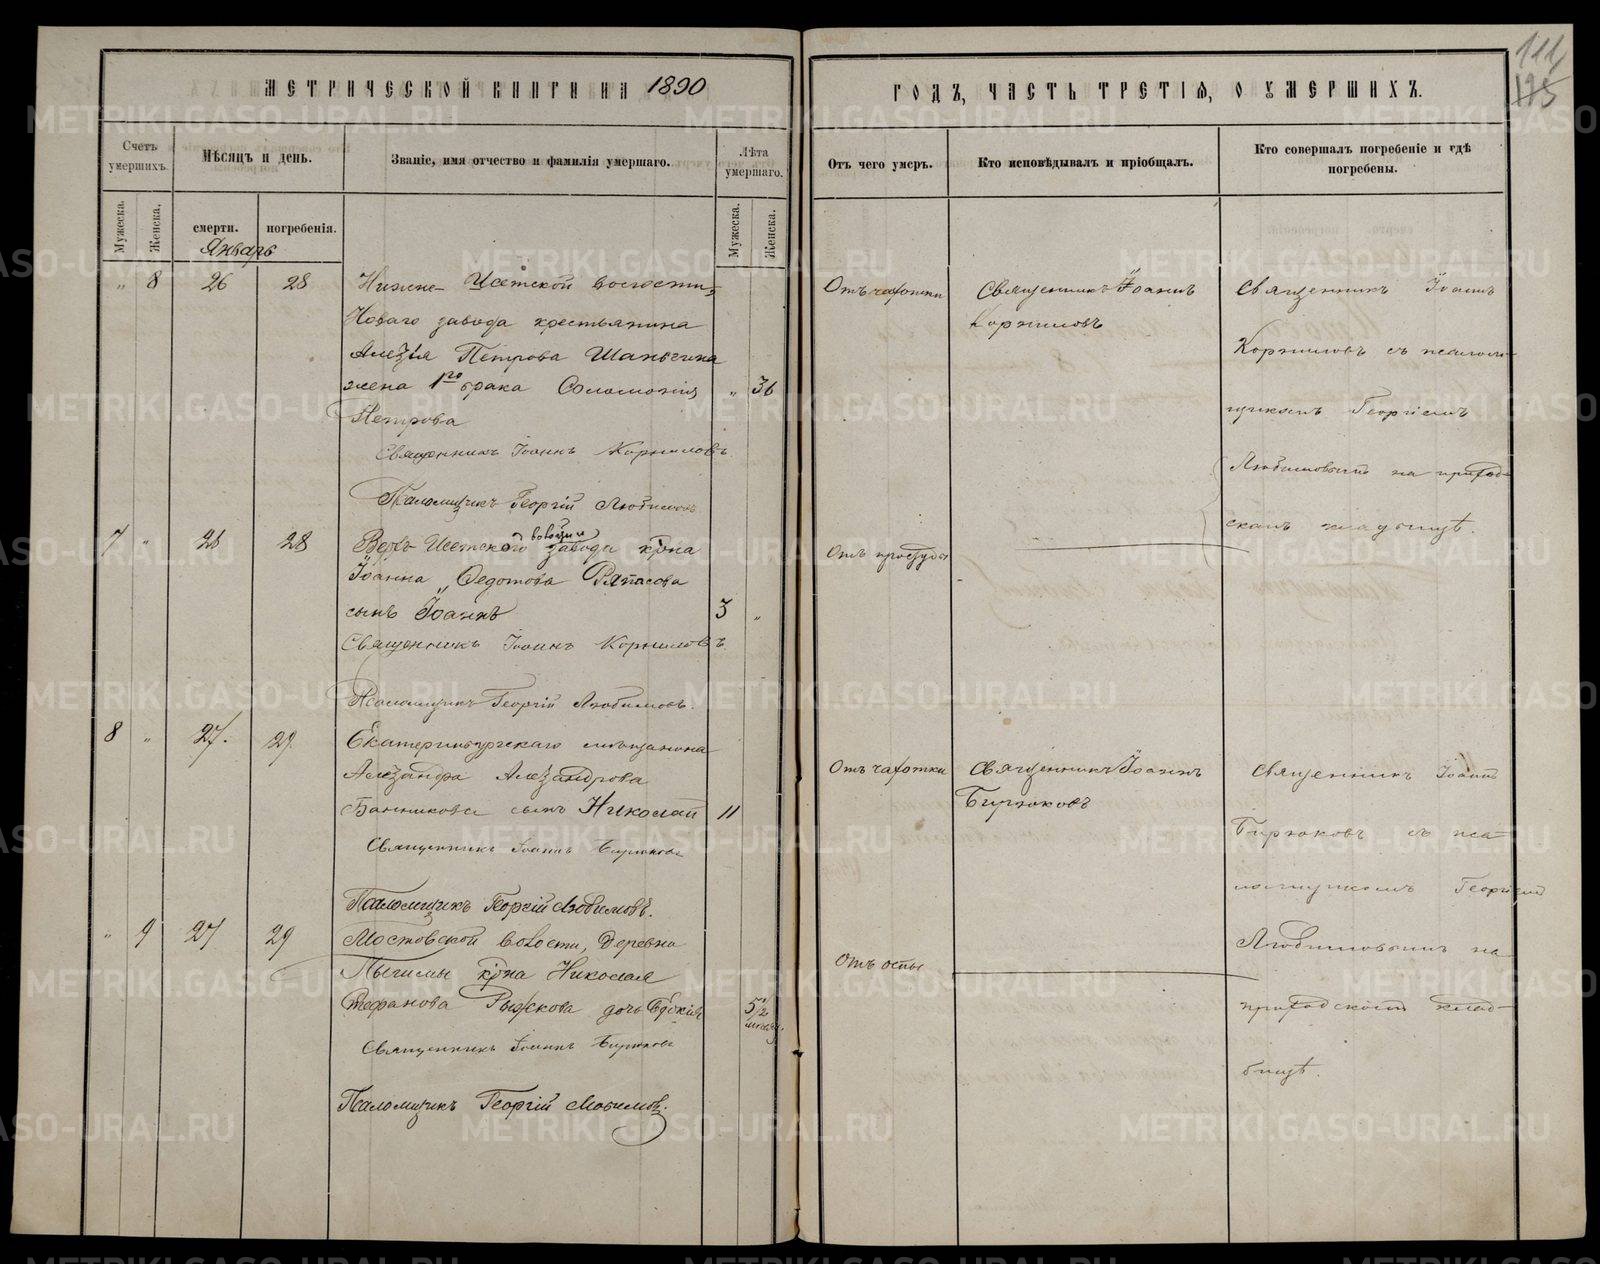 МЕТРИЧЕСКОЙ КНИГИ НА 1890
Счетъ умершихъ.
Мѣсяцъ и день.
Званіе, имя отчество и фамилія умершаго.
Лѣта умершаго.
Мужеска.
Женска.
смерти.
погребенія.
Мужеска.
Женска.
Январь
" 8 26 28 Нижне-Исетской волости,
Новаго завода крестьянина
Алезія Петрова Шаньгина
жена 1го брака Соломонія " 36
Петрова
Священникъ Іоаннъ Корниловъ.
Псаломщикъ Георгій Любимовъ
7 " 26 28 Верхъ-Исетской волости завода кр̃на
Іоанна Федотова
сынъ Іоаннъ 3 "
Священникъ Іоаннъ Корниловъ.
Псаломщикъ Георгій Любимовъ.
8 " 27. 29. Екатеринбургскаго мѣщанина
Алезандра Алезандрова
Банникова сынъ Николай 11
Священникъ Іоаннъ Бирюковъ
Псаломщикъ Георгій Любимовъ.
" 9 27 29 Мостовской волости, деревни
кр̃на Николая
Стефанова Рыжкова дочь Евдокія 5 1/2 мѣсяц.
Священникъ Іоаннъ Бирюковъ
Псаломщикъ Георгій Любимовъ.
111
175
ГОДЪ, ЧАСТЬ ТРЕТІЯ, О УМЕРШИХЪ.
Отъ чего умеръ.
Кто исповѣдывалъ и пріобщалъ.
Кто совершалъ погребеніе и гдѣ погребены.
Отъ чахотки
Священникъ Іоаннъ
Корниловъ
Священникъ Іоаннъ
Корниловъ съ псалом-
щикомъ Георгіемъ
Любимовымъ на приход-
скомъ кладбищѣ.
Отъ простуды
Отъ чахотки
Священникъ Іоаннъ
Бирюковъ
Священникъ Іоаннъ
Бирюковъ съ пса-
ломщикомъ Георгіем
Любимовымъ на
приходскомъ клад-
бищѣ.
Отъ оспы
METRIKI.GASO-URAL.RU